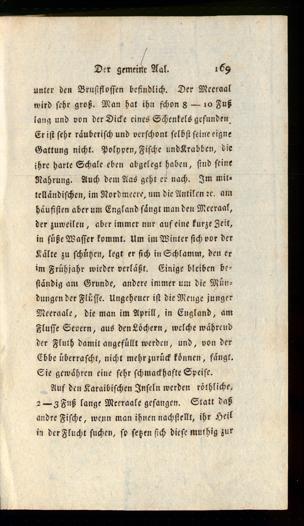 Der gemeine Aal. 169
unter den Brustflossen befindlich. Der Meeraal
wird sehr groß. Man hat ihn schon 8 — 10 Fuß
lang und von der Dicke eines Schenkels gefunden.
Er ist sehr räuberisch und verschont selbst seine eigne
Gattung nicht. Polypen, Fische und Krabben, die
ihre harte Schale eben abgelegt haben, sind seine
Nahrung. Auch dem Aas geht er nach. Im mit-
telländischen, im Nordmeere, um die Antillen ꝛc. am
häufisten aber um England fängt man den Meeraal,
der zuweilen, aber immer nur auf eine kurze Zeit,
in süße Wasser kommt. Um im Winter sich vor der
Kälte zu schützen, legt er sich in Schlamm, den er
im Frühjahr wieder verläßt. Einige bleiben be-
ständig am Grunde, andere immer um die Mün-
dungen der Flüsse. Ungeheuer ist die Menge junger
Meeraale, die man im Aprill, in England, am
Flusse Severn, aus den Löchern, welche während
der Fluth damit angefüllt werden, und, von der
Ebbe überrascht, nicht mehr zurück können, fängt.
Sie gewähren eine sehr schmackhafte Speise.
Auf den Karaibischen Inseln werden röthliche,
2 — 3 Fuß lange Meeraale gefangen. Statt daß
andre Fische, wenn man ihnen nachstellt, ihr Heil
in der Flucht suchen, so setzen sich diese muthig zur